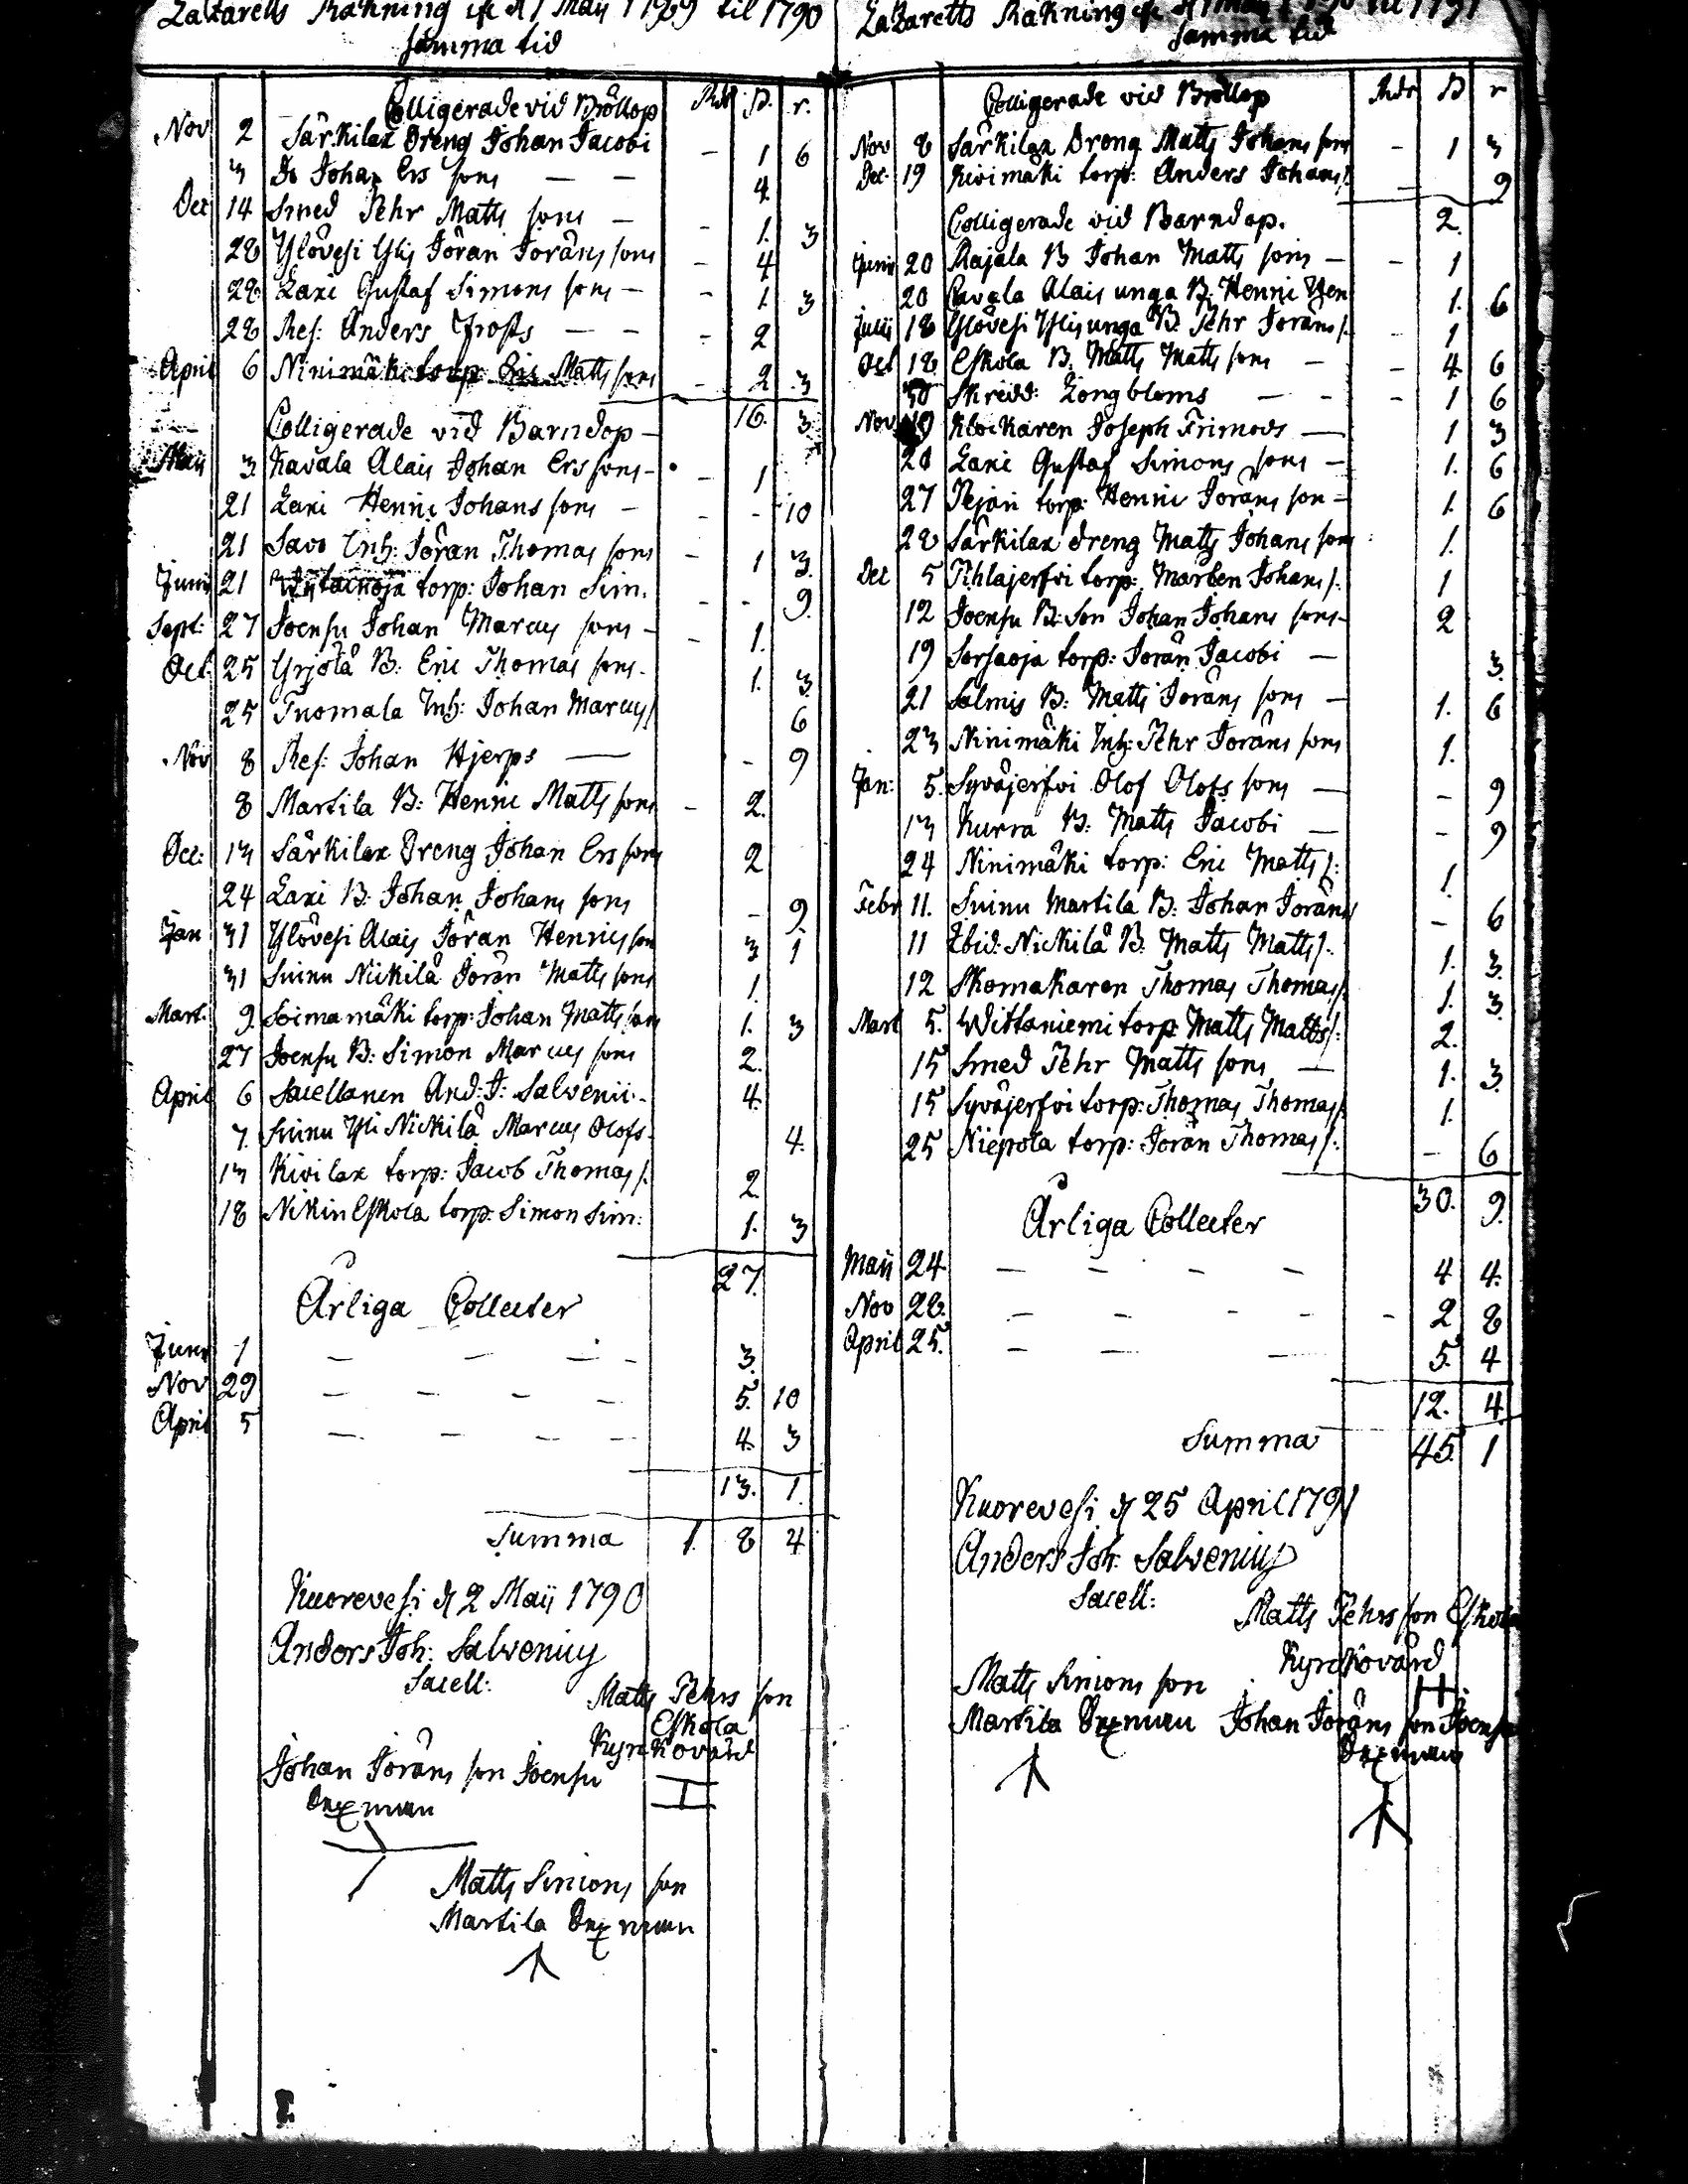 Lazaretts Räkning ifr d 1 Maij 1789 til 1790
samma tid
Colligerade vid Bröllop Rdr ß. r.
Nov 2 Särkilax Dreng Johan Jacobi – 1 6
3 Do Johan Ers sons — — 4.
Dec 14 Smed Pehr Matts sons — - 1. 3
28 Ylövesi Ylis Jöran Jörans sons – 4
28 Laxi Gustaf Simons sons – - 1 3
28 Ref: Anders Frosts — — - 2
April 6 Ninimäki torp: Eric Matts sons – 2 3
16. 3
Colligerade vid Barndop –
Maij 3. Kavala Alais Johan Ers sons – – 1
21 Laxi Henric Johans sons – - - 10
21 Savo Inh: Jöran Thomas sons – 1 3.
Junii 21 torp: Johan Sim. - - 9.
Sept: 27 Joensu Johan Marcus sons – - 1.
Oct. 25 Yrjölä B: Eric Thomas sons. 1. 3.
25 Tuomala Inh: Johan Marcus s 6
Nov 8 Ref: Johan Hjerps — - 9
8 Martila B: Henric Matts sons – 2.
Dec: 13 Särkilax Dreng Johan Ers sons 2
24 Laxi B: Johan Johans sons - 9.
Jan 31 Ylövesi Alais Jöran Henrics son 3 1
31 Suinu Nickilä Jöran Matts sons 1.
Mart. 9. Soimamäki torp: Johan Matts sons 1. 3
27 Joensu B: Simon Marcus sons 2.
April 6 Sacellanen And: J: Salvenii. - 4.
7. Suinu Yli Nickilä Marcus Olofs. 4.
13 Kivilax torp: Jacob Thomas s. 2
18 Nikin Eskola torp: Simon Sim: 1. 3
27.
Årliga Collecter
Junii 1 — — — - 3.
Nov 29 — — — — 5. 10
April 5 — — — — 4. 3
13. 1.
Summa 1. 8 4
Kuorevesi d 2 Maij 1790
Anders Joh: Salvenius
Sacell:
Matts Pehrs son
Eskola
Kyrkovärd
Johan Jörans son Joensu
Sexman
Matts Simons son
Martila Sexman
Lazaretts Räkning ifr d 1 Maij 1790 til 1791
samma tid
Colligerade vid Bröllop Rdr ß r
Nov 8 Särkilax Dreng Matts Johans sons – 1 3
Dec. 19 Kivimäki torp: Anders Johans s. — 9
2.
Colligerade vid Barndop.
Junii 20 Rajala B Johan Matts sons — - 1
20 Cavala Alais unga B: Henric Hen 1. 6
Julii 18 Ylövesi Ylis unga B. Pehr Jörans s. - 1
Oct 18. Eskola B. Matts Matts sons — - 4 6
30 Skredd: Longbloms — - - 1 6
Nov 19 Klockaren Joseph Frimods — 1 3
20 Laxi Gustaf Simons sons — 1. 6
27 Pejari torp: Henric Jörans son – 1. 6
28 Särkilax dreng Matts Johans sons 1.
Dec 5 Pihlajerfvi torp: Marten Johans s. 1
12 Joensu B: Son Johan Johans sons – 2
19 Sorsaoja torp: Jöran Jacobi — 3.
21 Salmis B: Matts Jörans sons — 1. 6
23 Ninimäki Inh: Pehr Jörans sons 1.
Jan: 5. Syväjerfvi Olof Olofs sons — - 9
13 Kurra B: Matts Jacobi — - 9
24 Ninimäki torp: Eric Matts s: 1.
Febr 11. Suinu Martila B: Johan Jörans – 6
11 Ibid: Nickilä B. Matts Matts s. 1. 3.
12 Skomakaren Thomas Thomas s. 1. 3.
Mart 5. Wittaniemi torp: Matts Matts s. 2.
15 Smed Pehr Matts sons — 1. 3.
15 Syväjerfvi torp: Thomas Thomas s. 1.
25 Niepola torp: Jöran Thomas s: – 6
30. 9.
Årliga Collecter
Maij 24 — — — — 4 4.
Nov 28. — — - - - 2 8
April 25. — — — 5. 4
12. 4.
Summa 45. 1
Kuorevesi d 25 April 1791
Anders Joh: Salvenius
Sacell:
Matts Pehrs son Eskola
Kyrkovärd
Matts Simons son
Martila Sexman Johan Jörans son Joensu
Sexman